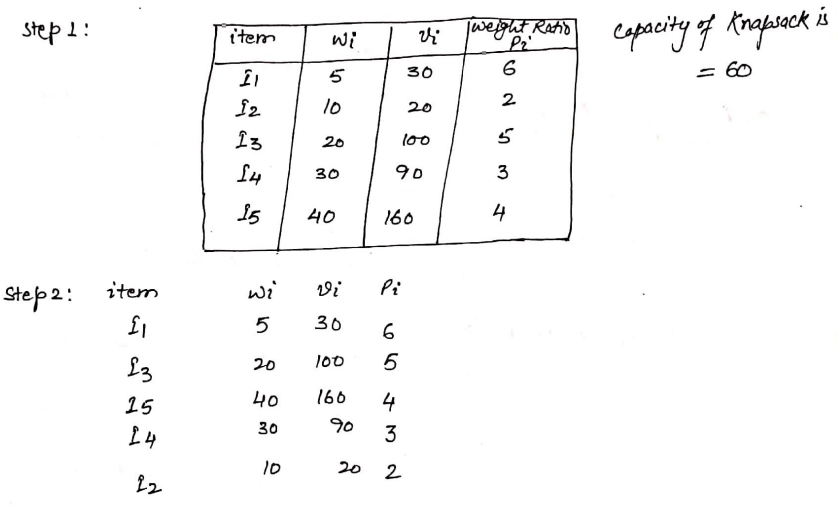 Step 1:
item wi vi weight Ratio Pi
I1 5 30 6
I2 10 20 2
I3 20 100 5
I4 30 90 3
I5 40 160 4
Capacity of Knapsack is
= 60
Step 2: item wi vi Pi
I1 5 30 6
I3 20 100 5
I5 40 160 4
I4 30 90 3
I2 10 20 2